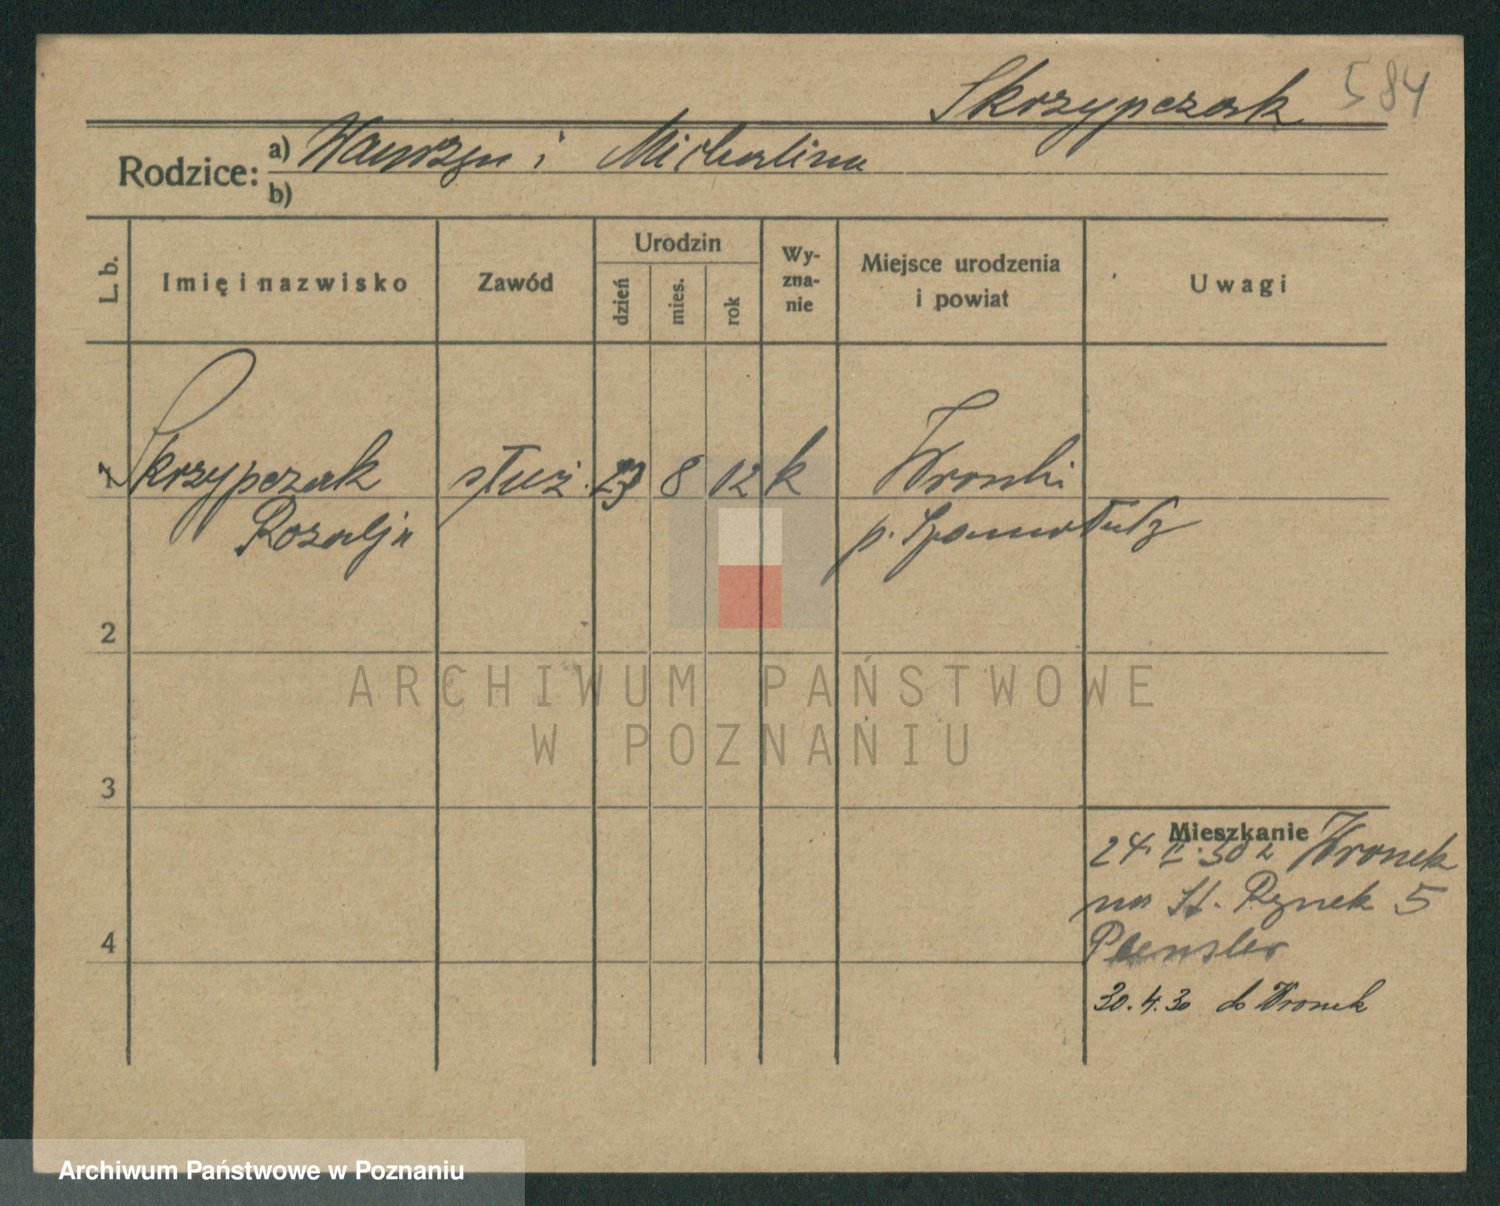 Skrzypczak 584
Rodzice: a) Wawrzyn i Michalina
b)
L. b. Imię i nazwisko Zawód Urodzin dzień mies. rok Wy-zna-nie Miejsce urodzenia i powiat Uwagi
1 Skrzypczak służ. 23 8 12 k Wronki
Rozalja p. Szamotuły
2
3
4
Mieszkanie
24 II. 30 z Wronek
na St. Rynek 5
30. 4. 30 do Wronek
ARCHIWUM PAŃSTWOWE
W POZNANIU
Archiwum Państwowe w Poznaniu